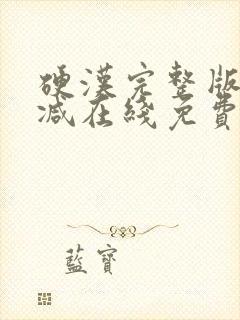 硬漢完整版
減在綫免費
藍寶